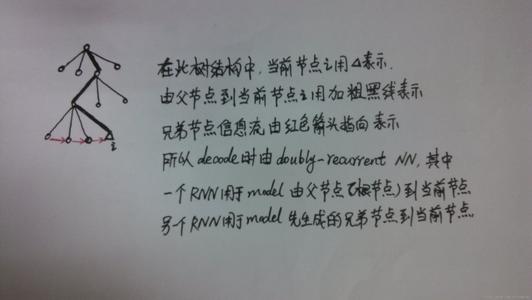 在此树结构中，当前节点i用△表示.
由父节点到当前节点i用加粗黑线表示
兄弟节点信息流由红色箭头指向表示
所以decode时由doubly-recurrent NN，其中
一个RNN用于model由父节点(根节点)到当前节点
另个RNN用于model先生成的兄弟节点到当前节点
i